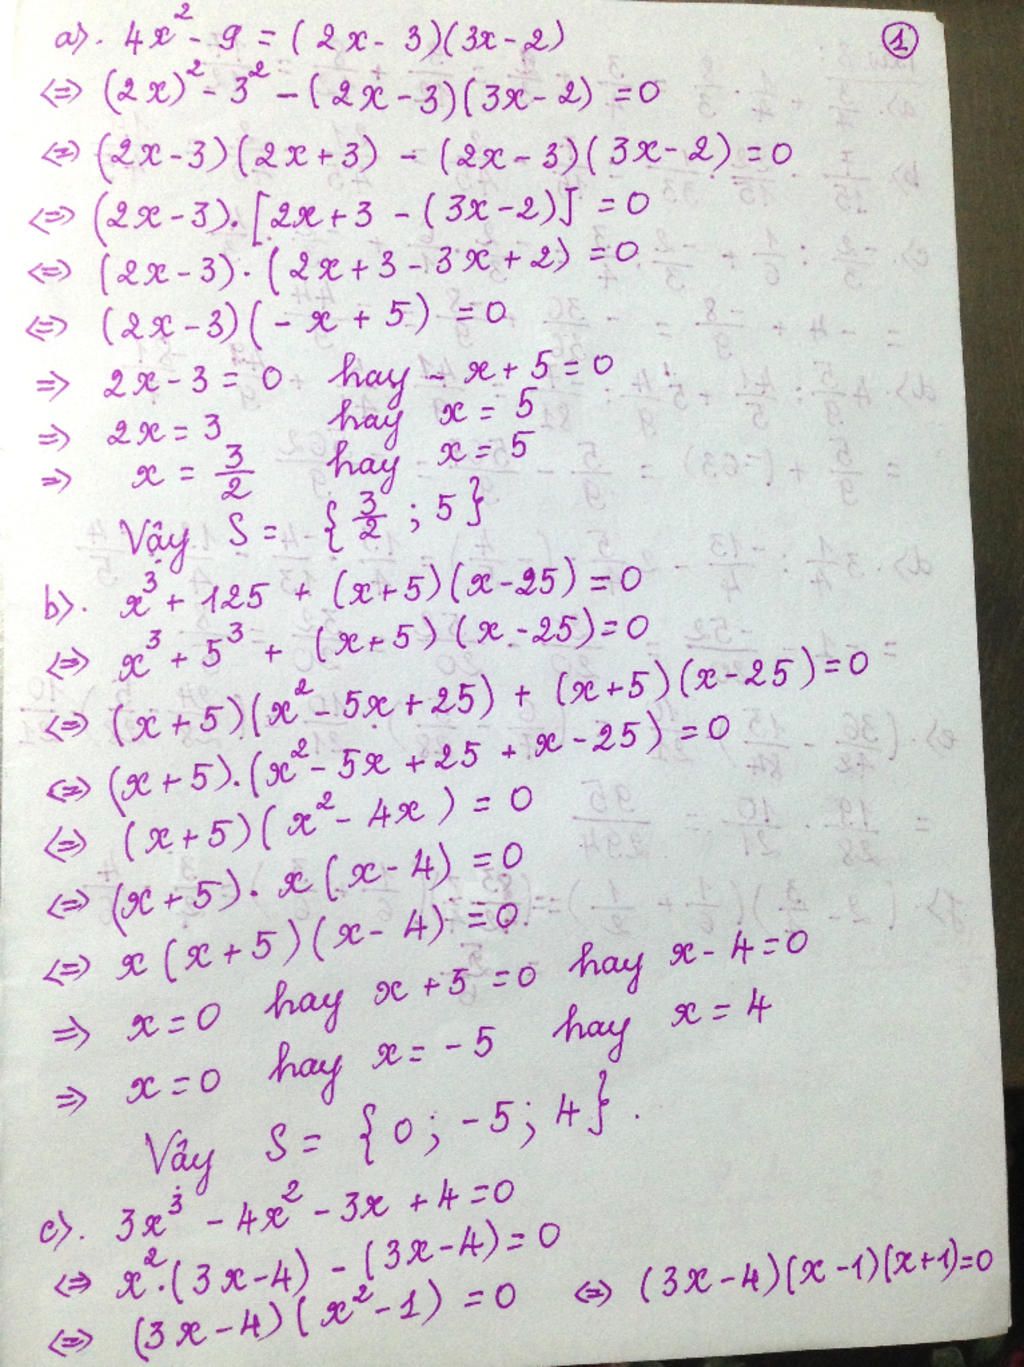 ①
a). 4x² - 9 = (2x - 3)(3x - 2)
⇔ (2x)² - 3² - (2x - 3)(3x - 2) = 0
⇔ (2x - 3)(2x + 3) - (2x - 3)(3x - 2) = 0
⇔ (2x - 3).[2x + 3 - (3x - 2)] = 0
⇔ (2x - 3).(2x + 3 - 3x + 2) = 0
⇔ (2x - 3)(-x + 5) = 0
⇒ 2x - 3 = 0 hay - x + 5 = 0
⇒ 2x = 3 hay x = 5
⇒ x = 3/2 hay x = 5
Vậy S = {3/2 ; 5}
b). x³ + 125 + (x + 5)(x - 25) = 0
⇔ x³ + 5³ + (x + 5)(x - 25) = 0
⇔ (x + 5)(x² - 5x + 25) + (x + 5)(x - 25) = 0
⇔ (x + 5).(x² - 5x + 25 + x - 25) = 0
⇔ (x + 5)(x² - 4x) = 0
⇔ (x + 5).x(x - 4) = 0
⇔ x(x + 5)(x - 4) = 0
⇒ x = 0 hay x + 5 = 0 hay x - 4 = 0
⇒ x = 0 hay x = - 5 hay x = 4
Vậy S = {0 ; - 5 ; 4}.
c). 3x³ - 4x² - 3x + 4 = 0
⇔ x².(3x - 4) - (3x - 4) = 0
⇔ (3x - 4)(x² - 1) = 0 ⇔ (3x - 4)(x - 1)(x + 1) = 0